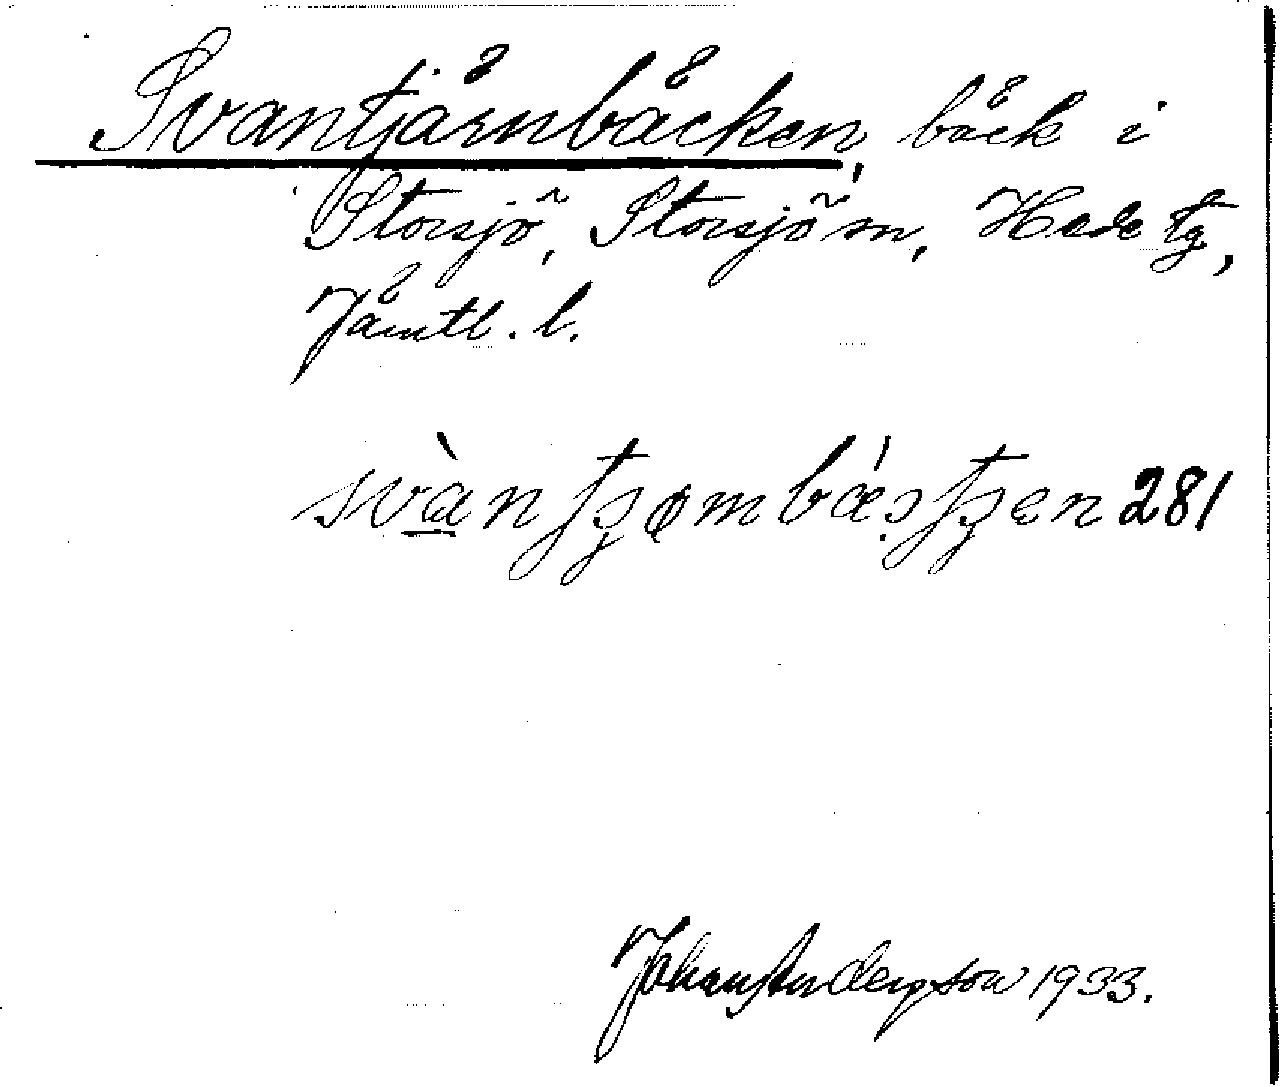 Svantjärnbäcken, bäck i
Storsjö, Storsjö m, Hede tg,
Jämtl. l.
281
Johan Anderson 1933.